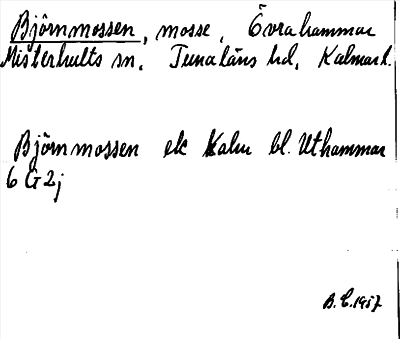 Björnmossen, mosse, Övrahammar
Misterhults sn, Tunaläns hd, Kalmar l.
Björnmossen ek Kalm bl. Uthammar
6 G 2j
B. E. 1957